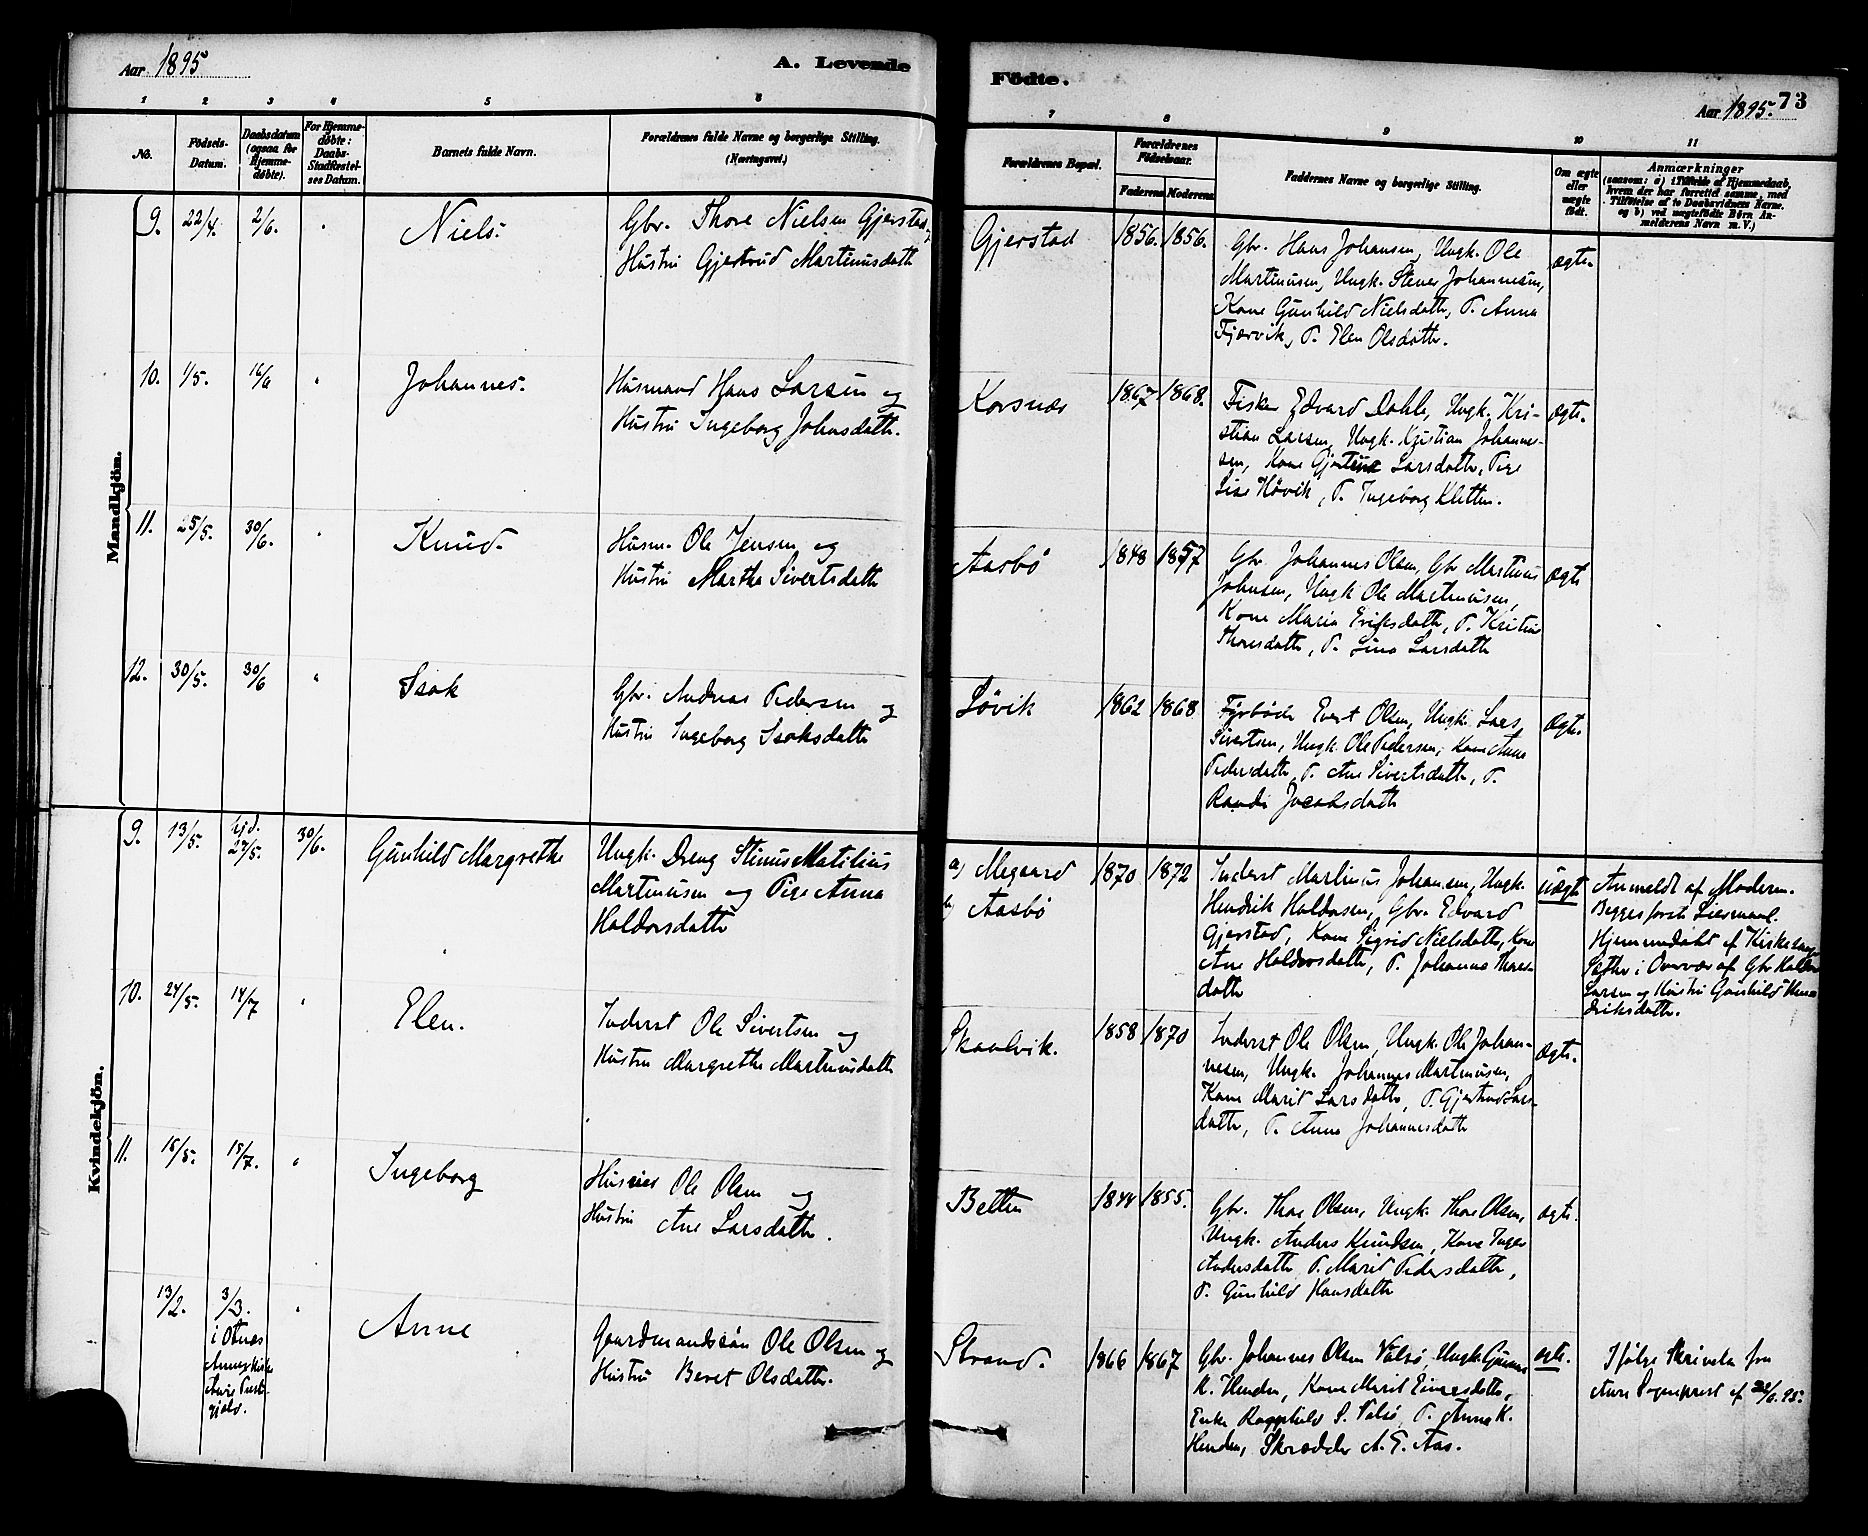 Aar 1895
A. Levende
Födte.
73
Aar 1895.
1 2 3 4 5 6
7 8 9 10 11
No.
Födsels-
Datum.
Daabsdatum
(ogsaa for
Hjemme-
døbte).
For Hjemme-
døbte:
Daabs-
Stadfæstel-
ses Datum.
Barnets fulde Navn.
Forældrenes fulde Navne og borgerlige Stilling.
(Næringsvei.)
Forældrenes Bopæl.
Forældrenes
Fødselsaar.
Faderens Moderens
Faddernes Navne og borgerlige Stilling.
Om ægte
eller
uægte
født.
Anmærkninger
(saasom: a) i Tilfælde af Hjemmedaab,
hvem der har forrettet samme, med
Tilføielse af to Daabsvidners Navne.
og b) ved uægtefødte Børn An-
melderens Navn m. V.)
Mandkjön.
9. 22/4. 2/6. "
Niels.
Gbr. Thore Nielsen Gjerstad og
Hustru Gjertrud Martinusdatte
Gjerstad
1856. 1856.
Gbr. Hans Johansen, Ungk. Ole
Martinusen, Ungk. Stener Johannesen,
Kone Gunhild Nielsdatte, P. Anna
Fjærvik, P. Elen Olsdatte.
ægte.
10. 1/5. 16/6 "
Johannes.
Husmand Hans Larsen og
Hustru Ingeborg Johnsdatte.
Korsnæs
1867 1868.
Fisker Edvard Dahle, Ungk. Kri-
stian Larsen, Ungk. Kristian Johannes-
sen, Kone Gjertine Larsdatte, Pige
Lise Høvik, P. Ingeborg Kletten.
ægte.
11. 25/5. 30/6. "
Knud.
Husm. Ole Jensen og
Hustru Marthe Sivertsdatte
Aasbø
1848 1857
Gbr Johannes Olsen, Gbr Martinus
Johnsen, Ungk Ole Martinusen,
Kone Maria Eriksdatte, P. Kristine
Thoresdatte, P. Lina Larsdatte
ægte
12. 30/5. 30/6 "
Isak
Gbr. Andreas Pedersen og
Hustru Ingeborg Isaksdatte
Løvik
1862 1868
Fyrbøder Evert Olsen, Ungk. Lars
Sivertsen, Ungk. Ole Pedersen, Kone Anne
Pedersdatte, P. Ane Sivertsdatte, P.
Randi Jacobsdatte
ægte.
Kvindekjön.
9. 13/5. hjd. 27/5. 30/6.
Gunhild Margrethe
Ungk. Dreng Stinus Matilius
Martinusen og Pige Anna
Haldorsdatte
a) Megaard
b) Aasbø
1870 1872
Inderst Martinus Johansen, Ungk.
Hendrik Haldorsen, Gbr. Edvard
Gjerstad, Kone Sigrid Nielsdatte, Kone
Ane Haldorsdatte, P. Johanna Thores-
datte
uægte
Anmeldt af Moderen.
Begges første Leiermaal.
Hjemmedøbt af Kirkesang.
Sæther i Overvær af Gbr Haldor
Larsen og Hustru Gunhild Hen-
driksdatte.
10. 24/5. 14/7 "
Elen.
Inderst Ole Sivertsen og
Hustru Margrethe Martinusdatte
Skaalvik.
1858 1870
Inderst Ole Olsen, Ungk. Ole Johan-
nesen, Ungk. Johannes Martinusen,
Kone Marit Larsdatte, P. Gjertrud Lars-
datte, P. Anne Johannesdatte
ægte.
11. 16/5. 15/7. "
Ingeborg
Ole Olsen og
Hustru Ane Larsdatte.
Betten
1844 1855.
Gbr. Thore Olsen, Ungk. Thore Olsen,
Ungk. Anders Knudsen, Kone Inger
Andersdatte P. Marit Pedersdatte,
P. Gunhild Hansdatte
ægte.
13/2. 3/3. "
i Otnes
Annexkirke
Aure Præste-
gjeld.
Anne
Gaardmandssøn Ole Olsen og
Hustru Beret Olsdatte.
Strand.
1866 1867
Gbr. Johannes Olsen Valsø, Ungk. Gunnar
K. Henden, Kone Marit Einersdatte,
Enke Ragnhild S. Valsø, P. Anne K.
Henden, Skrædder A. E. Aas.
ægte.
Ifølge Skrivelse fra
Aure Sogneprest af 22/6. 95.